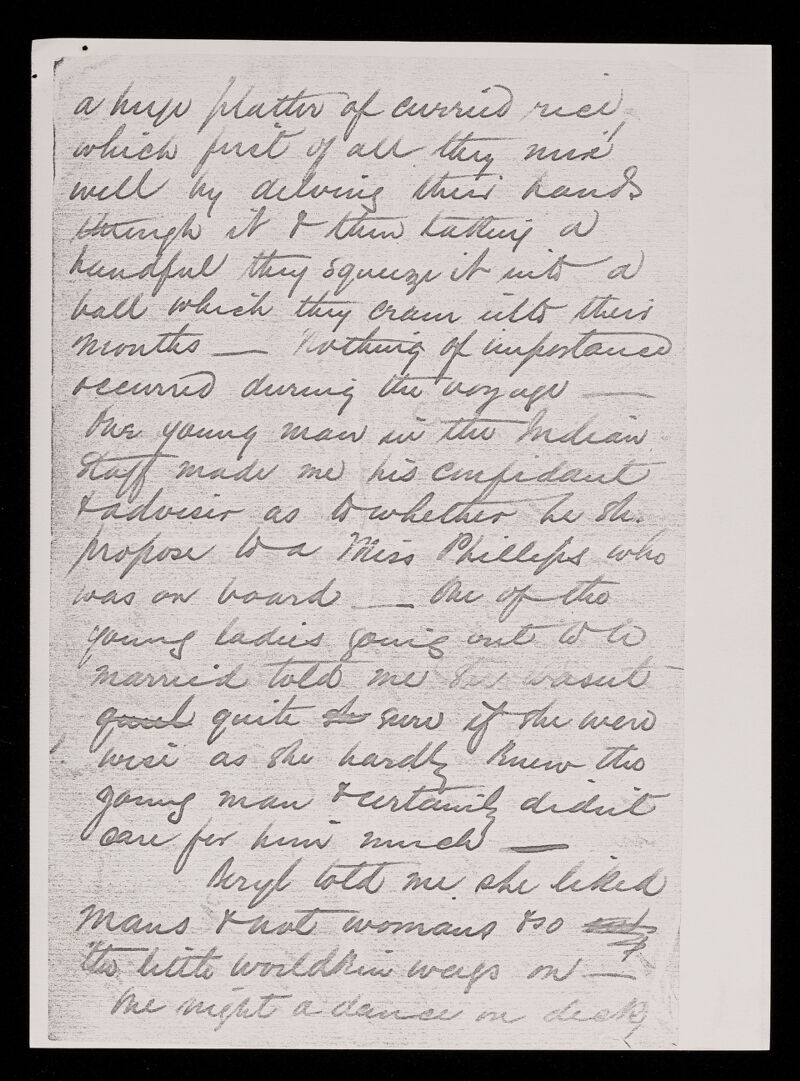 a huge platter of curried rice,
which first of all they mix
well by delving their hands
through it & then taking a
handful they squeeze it into a
ball which they cram into their
mouths — Nothing of importance
occurred during the voyage —
One young man in the Indian
Staff made me his confidant
& advisor as to whether he sh.
propose to a Miss Phillips who
was on board — One of the
young ladies going out to be
married told me she wasn't
quite sure if she were
wise as she hardly knew the
young man & certainly didn't
care for him much —
Beryl told me she liked
mans & not womans & so
the little worldkin wags on —
One night a dance on deck